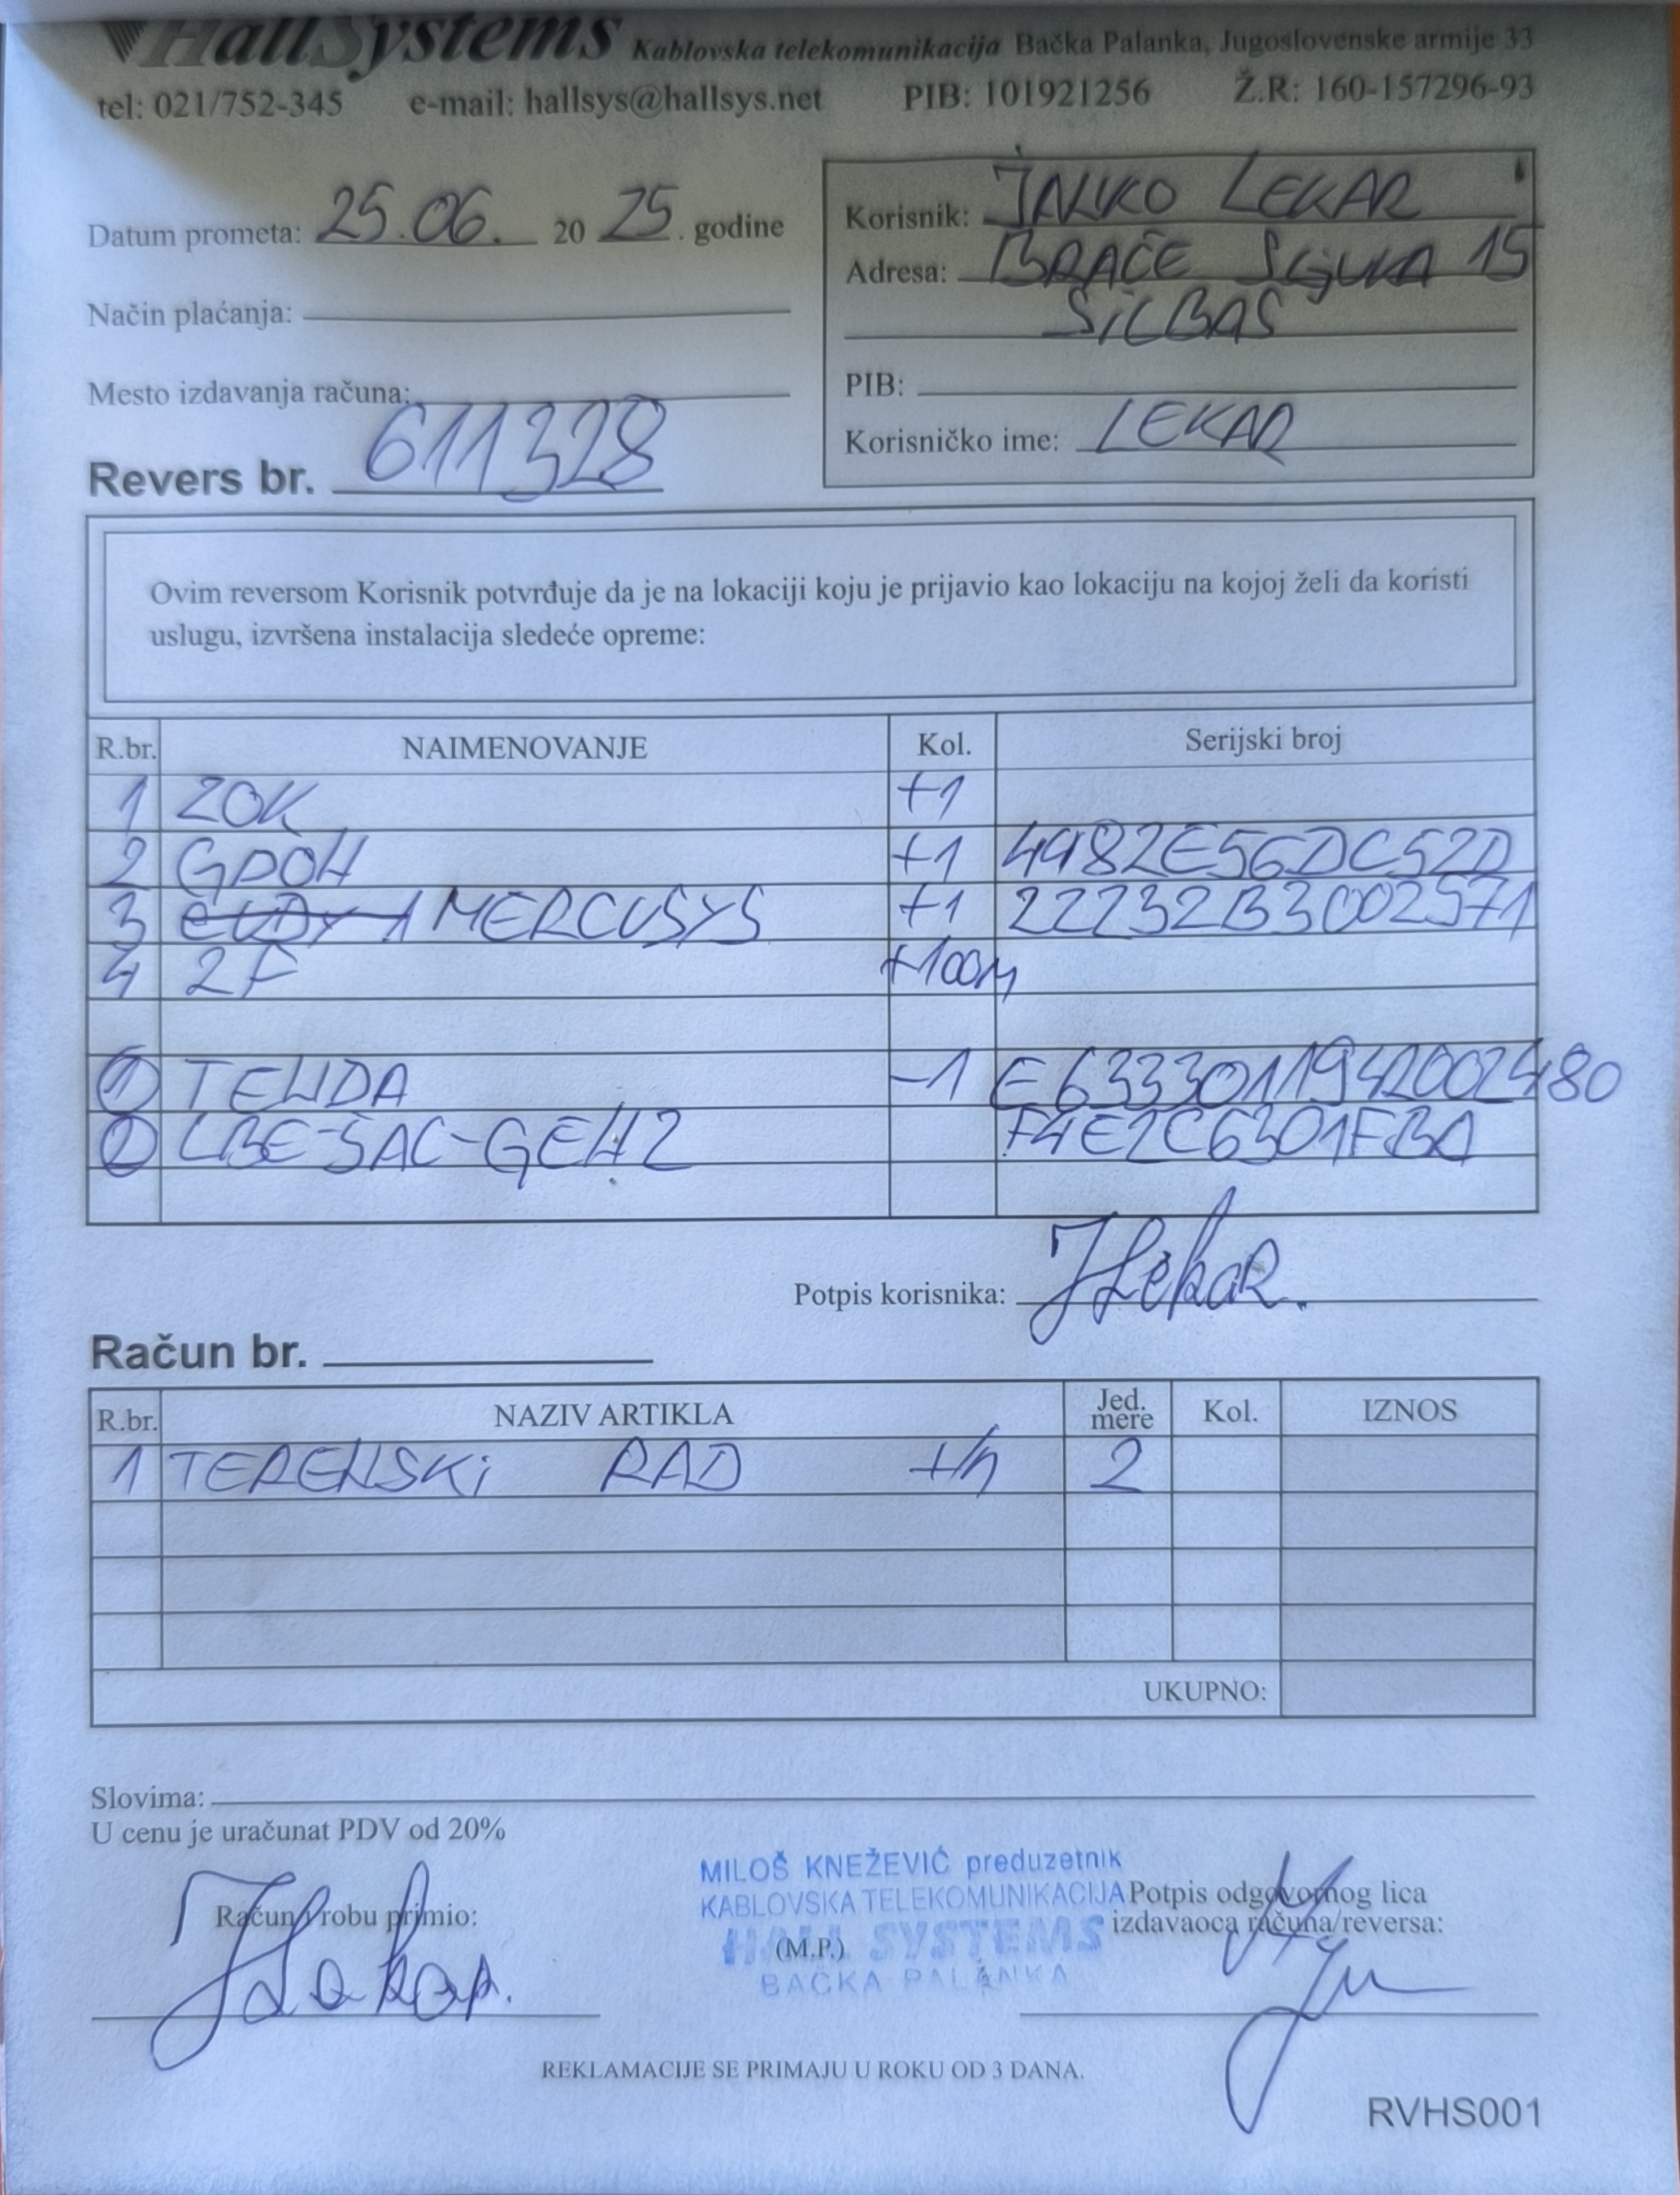 HallSystems Kablovska telekomunikacija Bačka Palanka, Jugoslovenske armije 33
tel: 021/752-345 e-mail: hallsys@hallsys.net PIB: 101921256 Ž.R: 160-157296-93
Datum prometa: 25.06. 20 25. godine
Korisnik: JANKO LEKAR
Adresa: BRAĆE 15
SILBAŠ
Način plaćanja:
Mesto izdavanja računa:
PIB:
Korisničko ime: LEKAR
Revers br. 611328
Ovim reversom Korisnik potvrđuje da je na lokaciji koju je prijavio kao lokaciju na kojoj želi da koristi
uslugu, izvršena instalacija sledeće opreme:
R.br. NAIMENOVANJE Kol. Serijski broj
1 ZOK +1
2 GPON +1 4982E56DC52D
3 MERCUSYS +1 22232B3002571
4 2F +100m
1 TENDA -1 E6333011942002480
2 LBE-5AC-GEN2 F4E2C6301FBA
Potpis korisnika: JLekar.
Račun br.
R.br. NAZIV ARTIKLA Jed. mere Kol. IZNOS
1 TERENSKI RAD 2
UKUPNO:
Slovima:
U cenu je uračunat PDV od 20%
MILOŠ KNEŽEVIĆ preduzetnik
KABLOVSKA TELEKOMUNIKACIJA
HALL SYSTEMS
BAČKA PALANKA
Račun i robu primio:
(M.P.)
Potpis odgovornog lica
izdavaoca računa/reversa:
REKLAMACIJE SE PRIMAJU U ROKU OD 3 DANA.
RVHS001